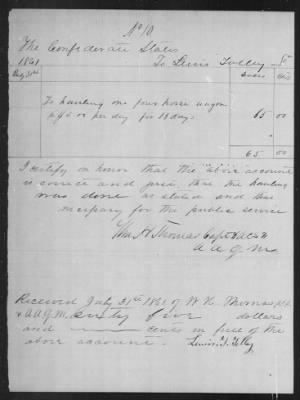 No 10
The Confederate States
1861 To Lewis Tolley Dr
July 31st
To hauling one four horse wagon
@ $5 00 per day for 13 days 65 00
65 00
I certify on honor that the above account
is correct and just, that the hauling
was done as stated and was
necessary for the public service
Wm H Thomas Capt &
A A Q M
Received July 31st 1861 of W H Thomas
& A A Q M. Sixty five dollars
and cents in full of the
above account. Lewis Tolley